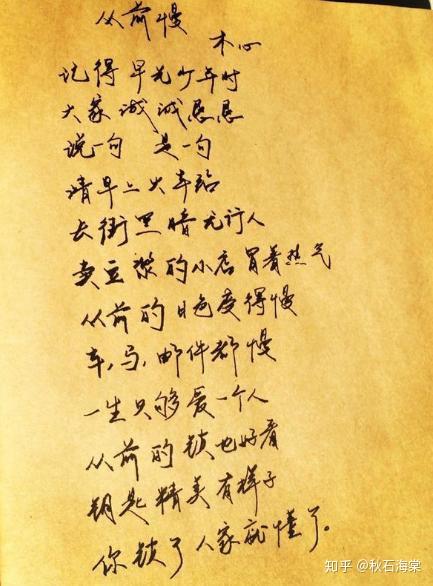 从前慢
木心
记得早先少年时
大家诚诚恳恳
说一句 是一句
清早上火车站
长街黑暗无行人
卖豆浆的小店冒着热气
从前的日色变得慢
车,马,邮件都慢
一生只够爱一个人
从前的锁也好看
钥匙精美有样子
你锁了人家就懂了。
知乎 @秋石海棠